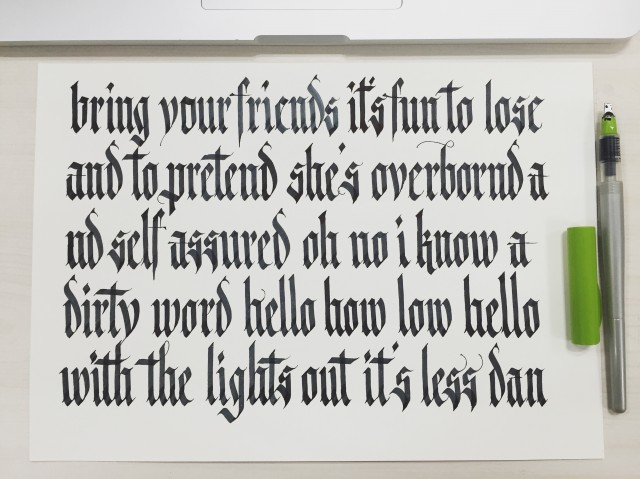 bring your friends it's fun to lose
and to pretend she's overbornd a
nd self assured oh no i know a
dirty word hello how low hello
with the lights out it's less dan